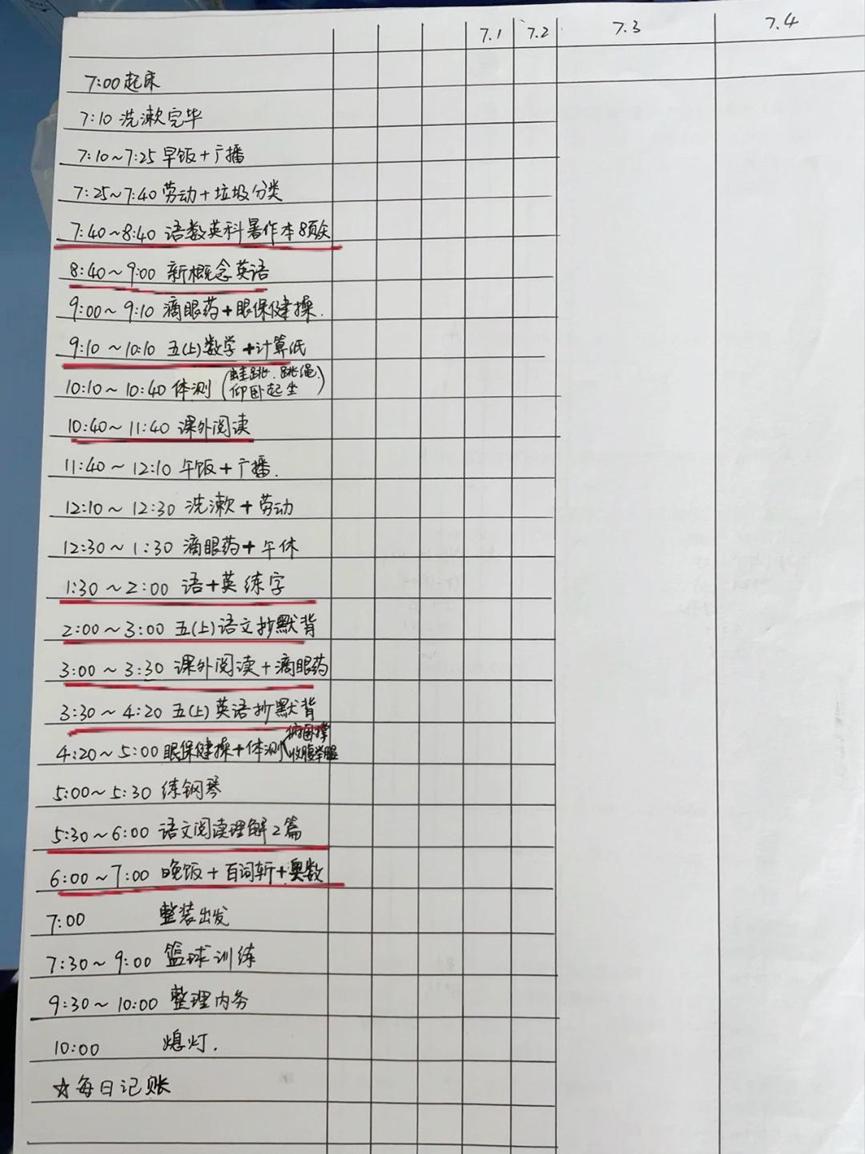 7.1 7.2 7.3 7.4
7:00 起床
7:10 洗漱完毕
7:10~7:25 早饭+广播
7:25~7:40 劳动+垃圾分类
7:40~8:40 语数英科暑作本8页
8:40~9:00 新概念英语
9:00~9:10 滴眼药+眼保健操.
9:10~10:10 五(上)数学+计算纸
10:10~10:40 体测(蛙跳.跳绳.仰卧起坐)
10:40~11:40 课外阅读
11:40~12:10 午饭+广播.
12:10~12:30 洗漱+劳动
12:30~1:30 滴眼药+午休
1:30~2:00 语+英练字
2:00~3:00 五(上)语文抄默背
3:00~3:30 课外阅读+滴眼药
3:30~4:20 五(上)英语抄默背
4:20~5:00 眼保健操+体测
5:00~5:30 练钢琴
5:30~6:00 语文阅读理解2篇
6:00~7:00 晚饭+百词斩+奥数
7:00 整装出发
7:30~9:00 篮球训练
9:30~10:00 整理内务
10:00 熄灯.
☆每日记账